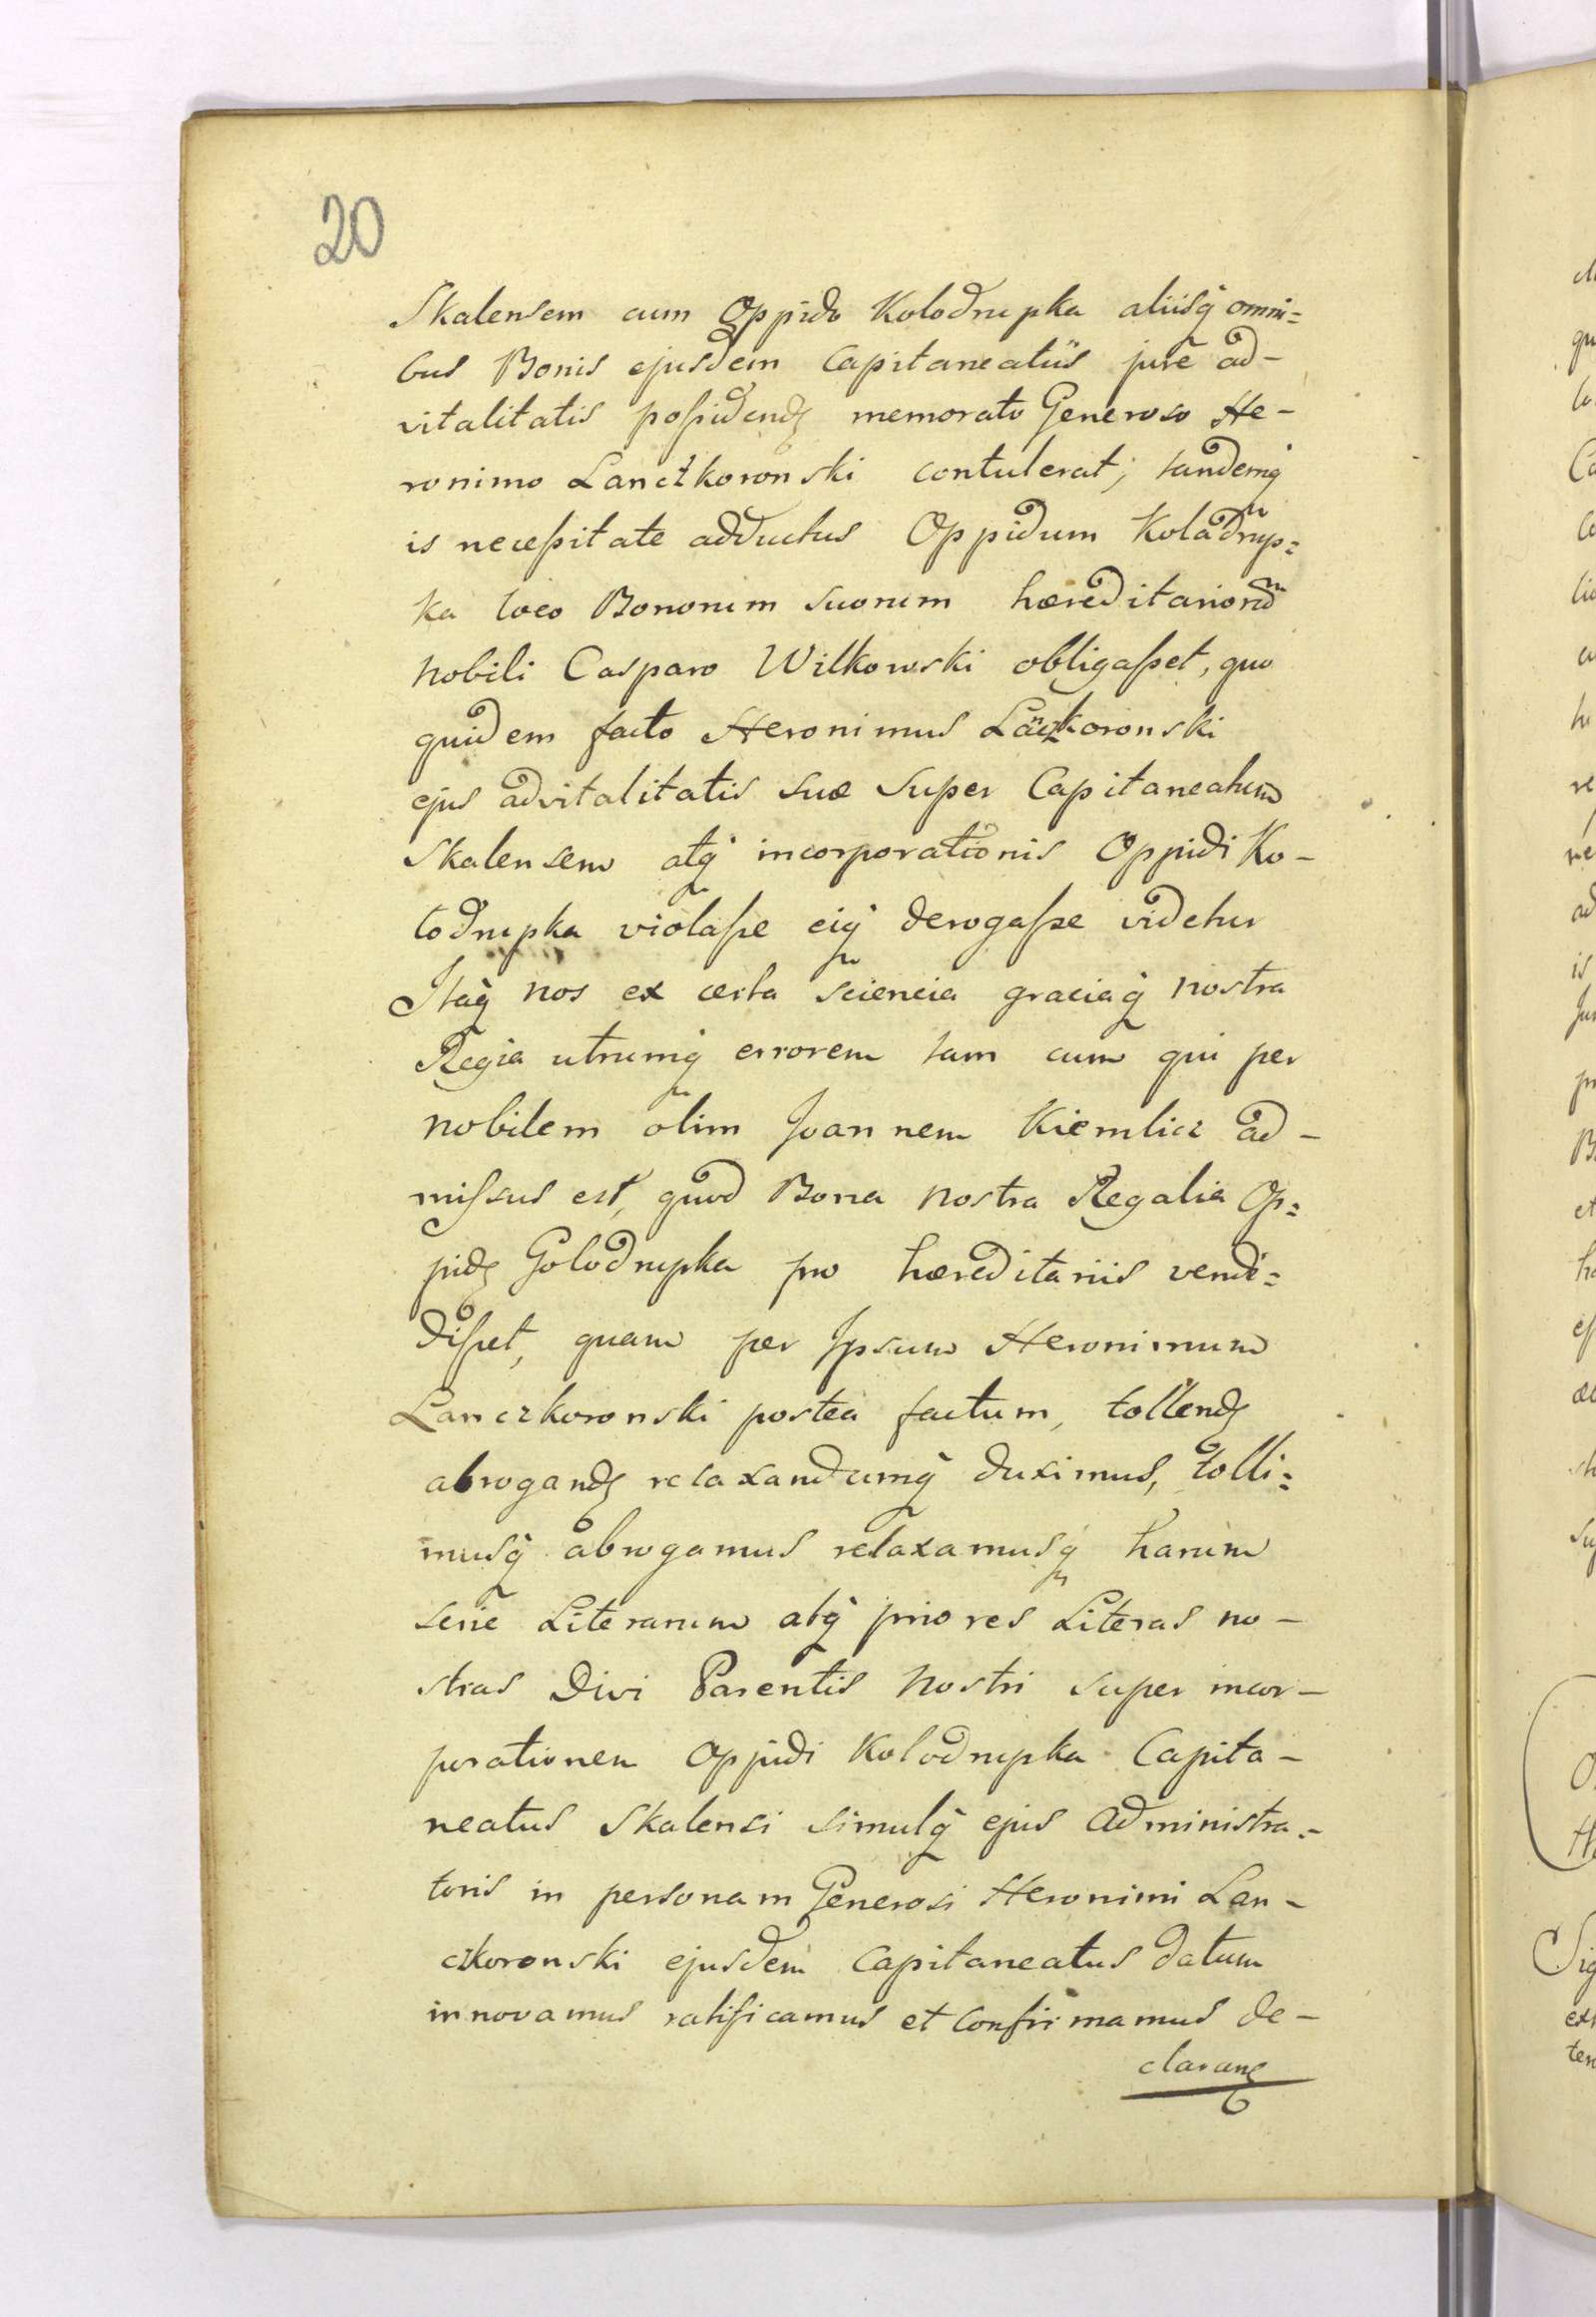 20
Skalensem cum Oppido Kolodrupka aliisq̃ omni=
bus Bonis ejusdem Capitaneatus jure ad-
vitalitatis poßidendɡ memorato Generoso He-
ronimo Lanczkoronski contulerat, tandemq̃
is neceßitate adductus Oppidum Koladrup=
ka loco Bonorum suorum hæreditariorũ
nobili Casparo Wilkowski obligaßet, quo
quidem facto Heronimus Lãczkoronski
ejus advitalitatis suæ super Capitaneatum
Skalensem atq̃ incorporationis Oppidi Ko-
lodrupka violaße eiq̃ derogaße videtur
Itaq̃ nos ex certa sciencia graciaq̃ nostra
Regia utrumq̃ errorem tam eum qui per
nobilem olim Joannem Kiemlicz ad-
mißus est, quod Bona nostra Regalia Op=
pidɡ Golodrupka pro hæreditariis vendi=
dißet, quam per Ipsum Heronimum
Lanczkoronski postea factum, tollendɡ
abrogandɡ relaxandumq̃ duximus, tolli=
musq̃ abrogamus relaxamusq̃ harum
serie Literarum atq̃ priores Literas no-
stras Divi Parentis nostri super incor-
porationem Oppidi Kolodrupka Capita-
neatus Skalensi simulq̃ ejus Administra=
toris in personam Generosi Heronimi Lan-
czkoronski ejusdem Capitaneatus datum
innovamus ratificamus et confirmamus de-
claranɡ